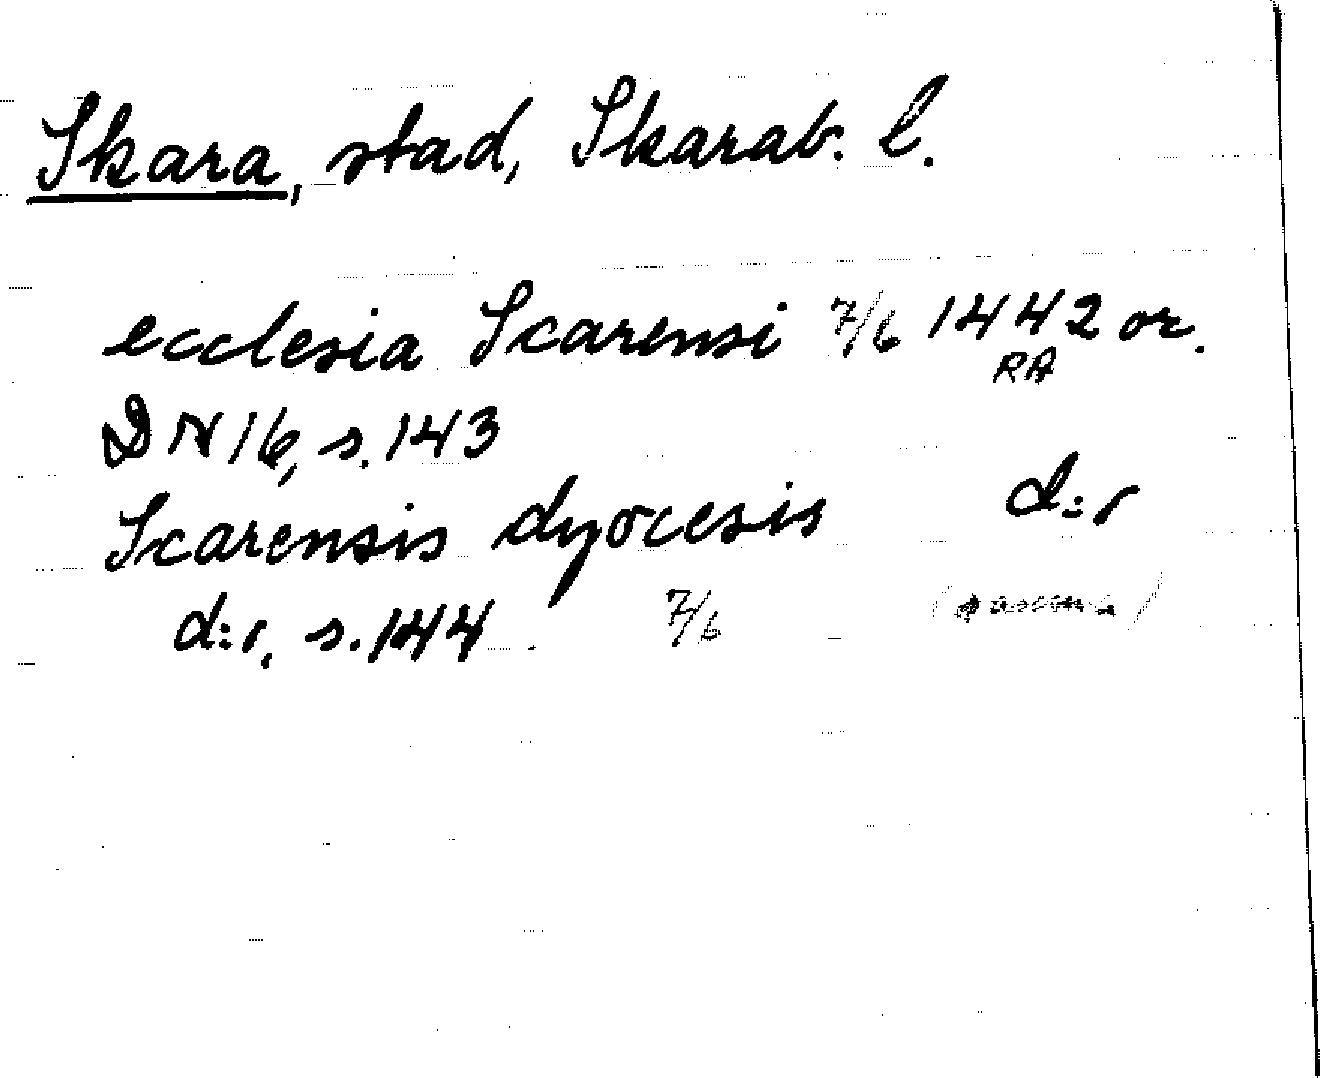 Skara, stad, Skarab. l.
ecclesia Scarensi 7/6 1442 or.
RA
DN 16, s. 143
Scarensis dyocesis d:o
d:o, s. 144 7/6